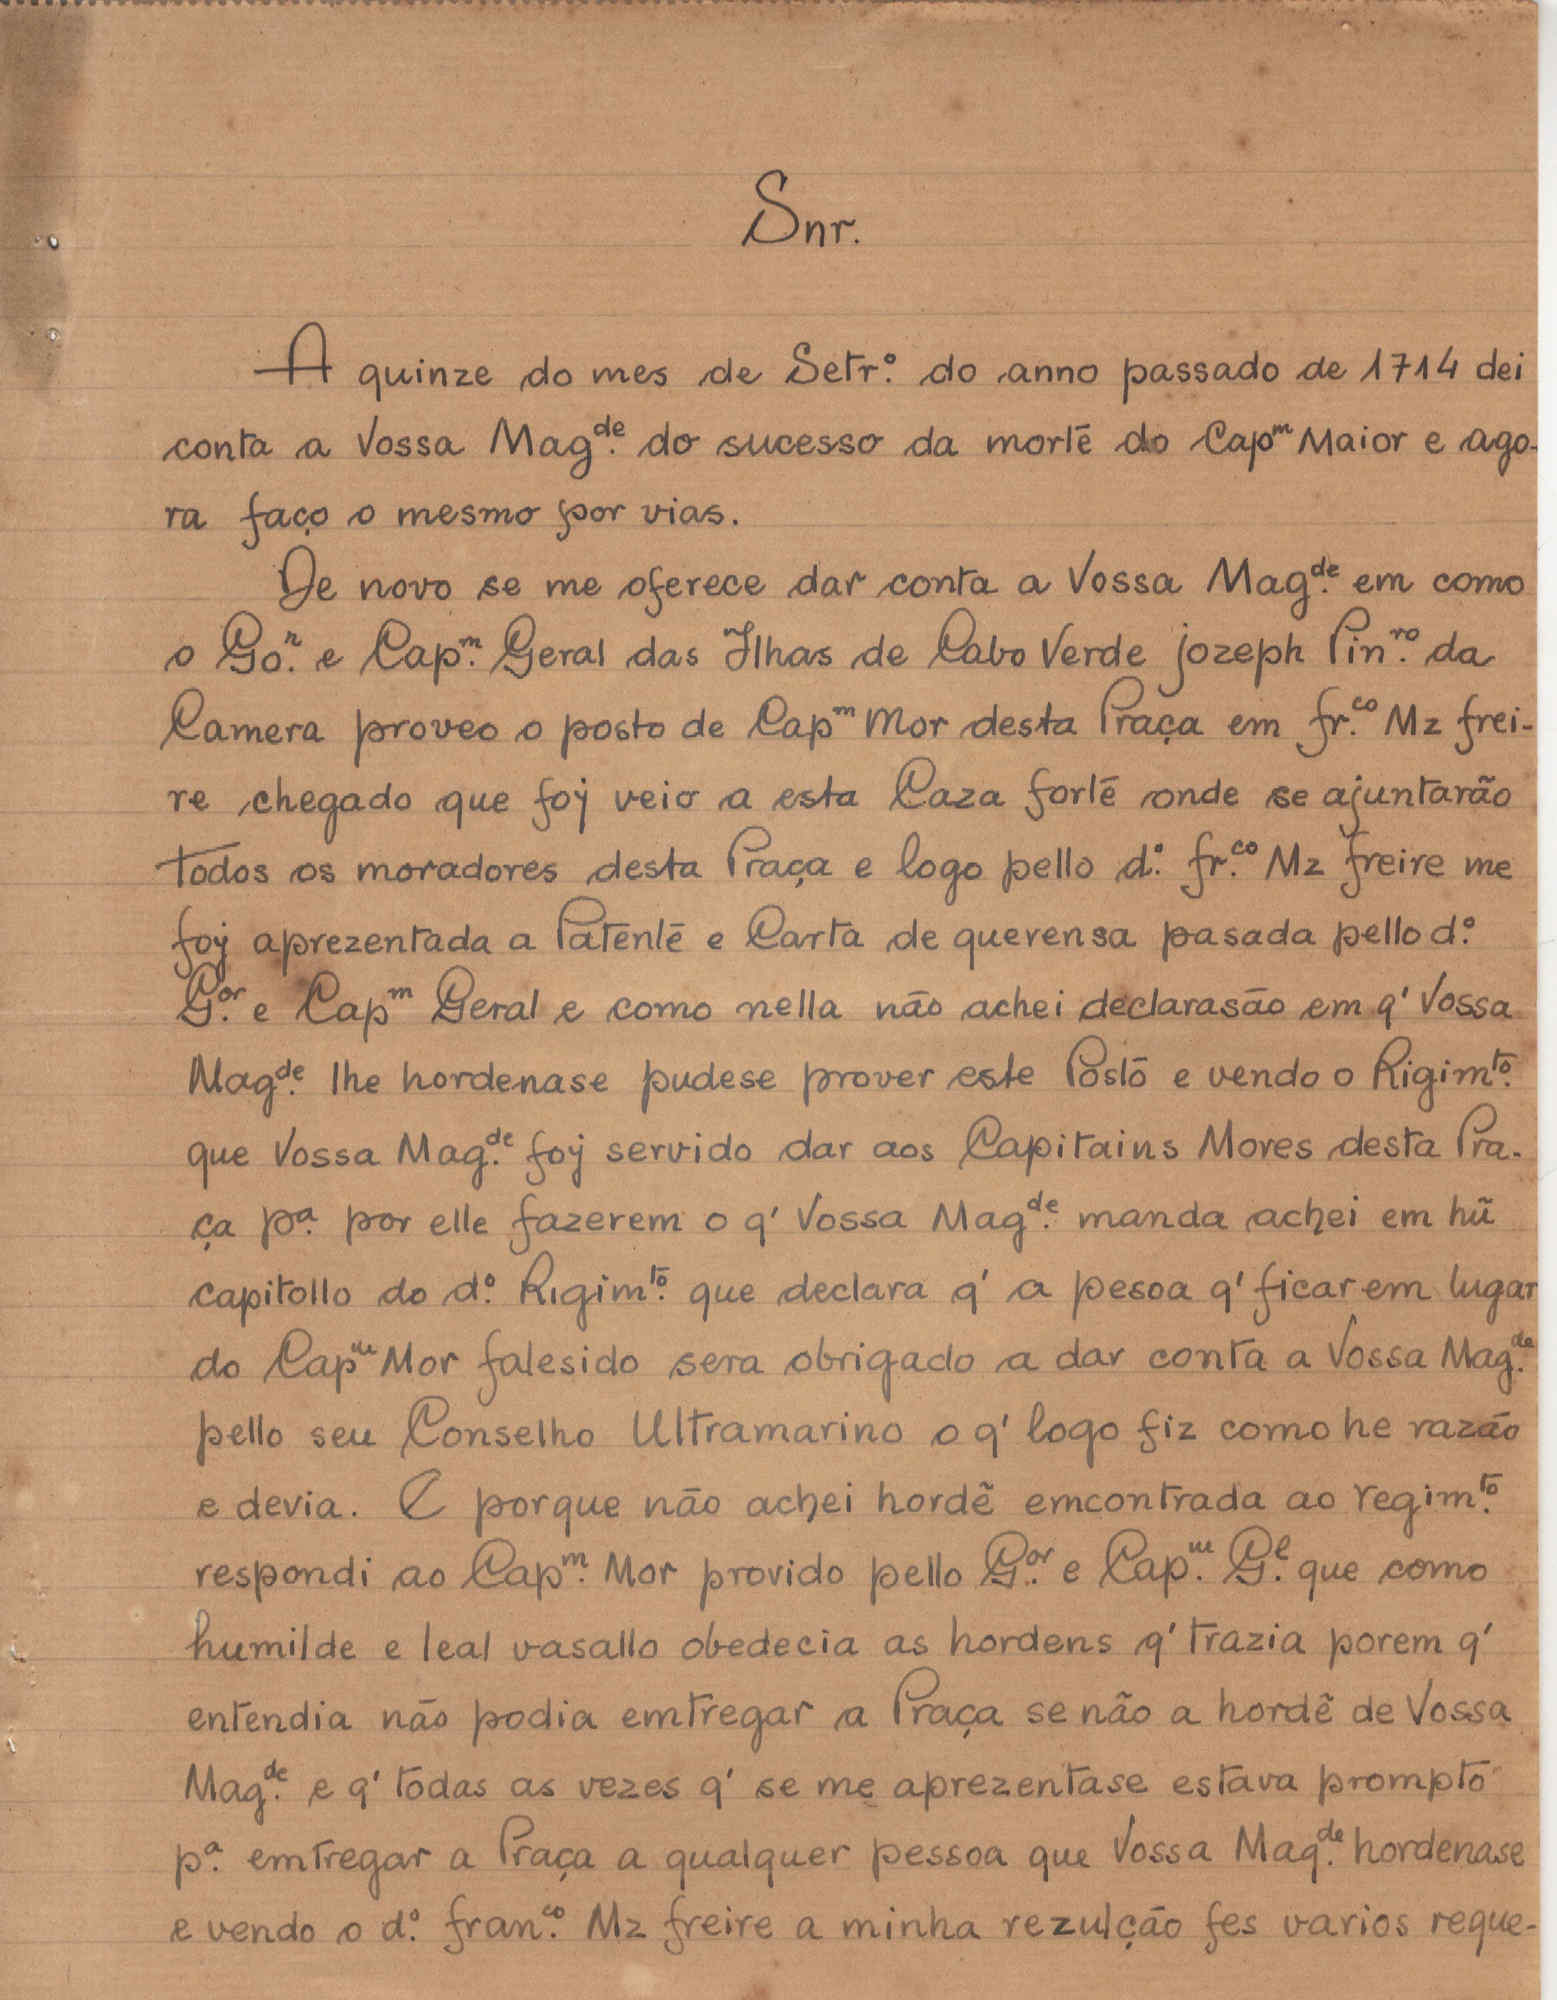 Snr.
A quinze do mes de Setr.º do anno passado de 1714 dei
conta a Vossa Mag.de do sucesso da mortē do Capm Maior e ago-
ra faço o mesmo por vias.
De novo se me oferece dar conta a Vossa Mag.de em como
o Go.r e Cap.m Geral das Ilhas de Cabo Verde jozeph Pin.ro da
Camera proveo o posto de Capm Mor desta Praça em fr.co Mz frei-
re chegado que foÿ veio a esta Caza fortē onde se ajuntarão
todos os moradores desta Praça e logo pello d.º fr.co Mz freire me
foÿ aprezentada a Patēntē e Carta de querensa pasada pello d.º
G.or e Capm Geral e como nella não achei declarasão em q' Vossa
Mag.de lhe hordenase pudese prover este Postō e vendo o Rigim.to
que Vossa Mag.de foÿ servido dar aos Capitains Mores desta Pra-
ça p.a por elle fazerem o q' Vossa Mag.de manda achei em hũ
capitollo do d.º Rigim.to que declara q' a pesoa q' ficar em lugar
do Capm Mor falesido sera obrigado a dar conta a Vossa Mag.de
pello seu Conselho Ultramarino o q' logo fiz como he razão
e devia. E porque não achei hordẽ emcontrada ao regim.to
respondi ao Cap.m Mor provido pello G.or e Cap.m G.l que como
humilde e leal vasallo obedecia as hordens q' trazia porem q'
entendia não podia emtregar a Praça se não a hordẽ de Vossa
Mag.de e q' todas as vezes q' se me aprezentase estava prompto
p.a emtregar a Praça a qualquer pessoa que Vossa Mag.de hordenase
e vendo o d.º fran.co Mz freire a minha rezulção fes varios reque-